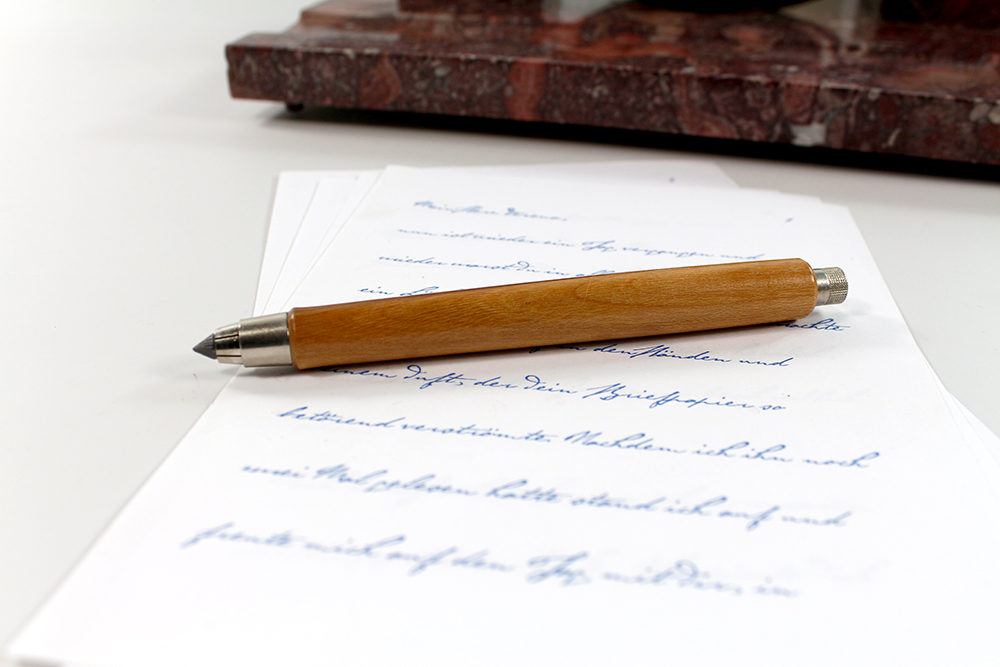 nun ist wieder ein Tag vergangen und
wieder warst Du in
ein
machte
den Händen und
einem Duft, der dein Briefpapier so
betörend verströmte. Nachdem ich ihn noch
zwei Mal gelesen hatte stand ich auf und
freute mich auf den Tag mit Dir, in